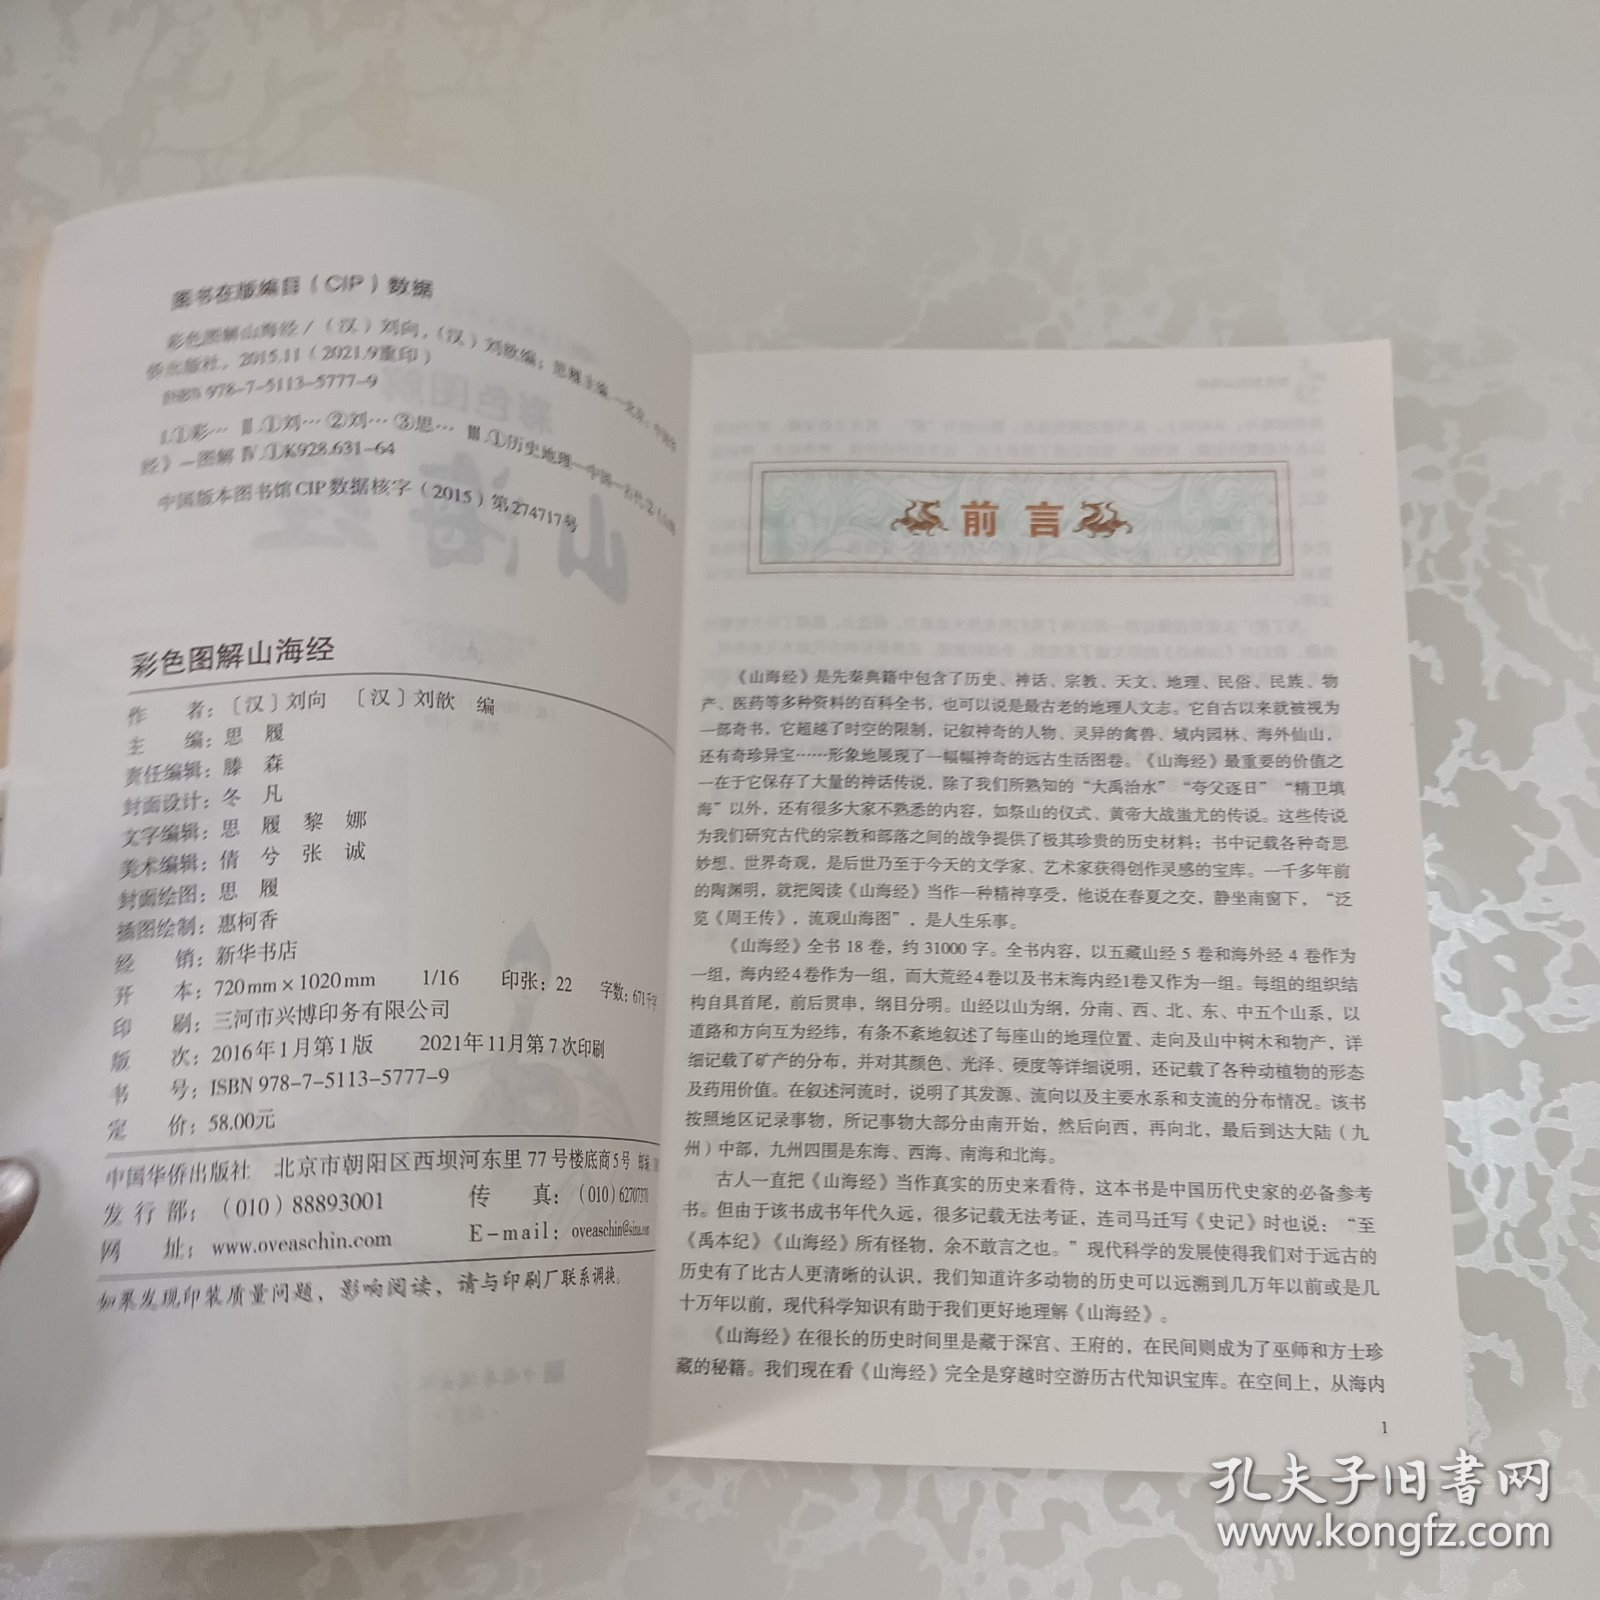 图书在版编目（CIP）数据
彩色图解山海经 /（汉）刘向，（汉）刘歆编；思履主编
侨出版社，2015.11（2021.9重印）
ISBN 978-7-5113-5777-9
Ⅰ.①彩… Ⅱ.①刘…②刘…③思… Ⅲ.①历史地理—中国—古代
经》—图解 Ⅳ.①K928.631-64
中国版本图书馆CIP数据核字（2015）第274717号
彩色图解山海经
作　　者：〔汉〕刘向　〔汉〕刘歆　编
主　　编：思　履
责任编辑：滕　森
封面设计：冬　凡
文字编辑：思　履　黎　娜
美术编辑：倩　兮　张　诚
封面绘图：思　履
插图绘制：惠柯香
经　　销：新华书店
开　　本：720mm×1020mm　1/16　印张：22　字数：671千字
印　　刷：三河市兴博印务有限公司
版　　次：2016年1月第1版　2021年11月第7次印刷
书　　号：ISBN 978-7-5113-5777-9
定　　价：58.00元
中国华侨出版社　北京市朝阳区西坝河东里77号楼底商5号　邮编：
发 行 部：（010）88893001　传　　真：（010）62707370
网　　址：www.oveaschin.com　E-mail：oveaschin@sina.com
如果发现印装质量问题，影响阅读，请与印刷厂联系调换。
前言
《山海经》是先秦典籍中包含了历史、神话、宗教、天文、地理、民俗、民族、物
产、医药等多种资料的百科全书，也可以说是最古老的地理人文志。它自古以来就被视为
一部奇书，它超越了时空的限制，记叙神奇的人物、灵异的禽兽、域内园林、海外仙山，
还有奇珍异宝……形象地展现了一幅幅神奇的远古生活图卷。《山海经》最重要的价值之
一在于它保存了大量的神话传说，除了我们所熟知的“大禹治水”“夸父逐日”“精卫填
海”以外，还有很多大家不熟悉的内容，如祭山的仪式、黄帝大战蚩尤的传说。这些传说
为我们研究古代的宗教和部落之间的战争提供了极其珍贵的历史材料；书中记载各种奇思
妙想、世界奇观，是后世乃至于今天的文学家、艺术家获得创作灵感的宝库。一千多年前
的陶渊明，就把阅读《山海经》当作一种精神享受，他说在春夏之交，静坐南窗下，“泛
览《周王传》，流观山海图”，是人生乐事。
《山海经》全书18卷，约31000字。全书内容，以五藏山经5卷和海外经4卷作为
一组，海内经4卷作为一组，而大荒经4卷以及书末海内经1卷又作为一组。每组的组织结
构自具首尾，前后贯串，纲目分明。山经以山为纲，分南、西、北、东、中五个山系，以
道路和方向互为经纬，有条不紊地叙述了每座山的地理位置、走向及山中树木和物产，详
细记载了矿产的分布，并对其颜色、光泽、硬度等详细说明，还记载了各种动植物的形态
及药用价值。在叙述河流时，说明了其发源、流向以及主要水系和支流的分布情况。该书
按照地区记录事物，所记事物大部分由南开始，然后向西，再向北，最后到达大陆（九
州）中部，九州四围是东海、西海、南海和北海。
古人一直把《山海经》当作真实的历史来看待，这本书是中国历代史家的必备参考
书。但由于该书成书年代久远，很多记载无法考证，连司马迁写《史记》时也说：“至
《禹本纪》《山海经》所有怪物，余不敢言之也。”现代科学的发展使得我们对于远古的
历史有了比古人更清晰的认识，我们知道许多动物的历史可以远溯到几万年以前或是几
十万年以前，现代科学知识有助于我们更好地理解《山海经》。
《山海经》在很长的历史时间里是藏于深宫、王府的，在民间则成为了巫师和方士珍
藏的秘籍。我们现在看《山海经》完全是穿越时空游历古代知识宝库。在空间上，从海内
1
孔夫子旧书网
www.kongfz.com